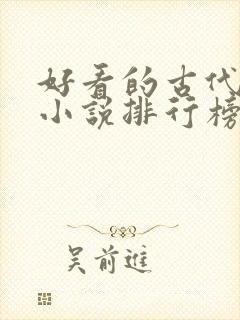 好看的古代
小说排行榜
吴前進